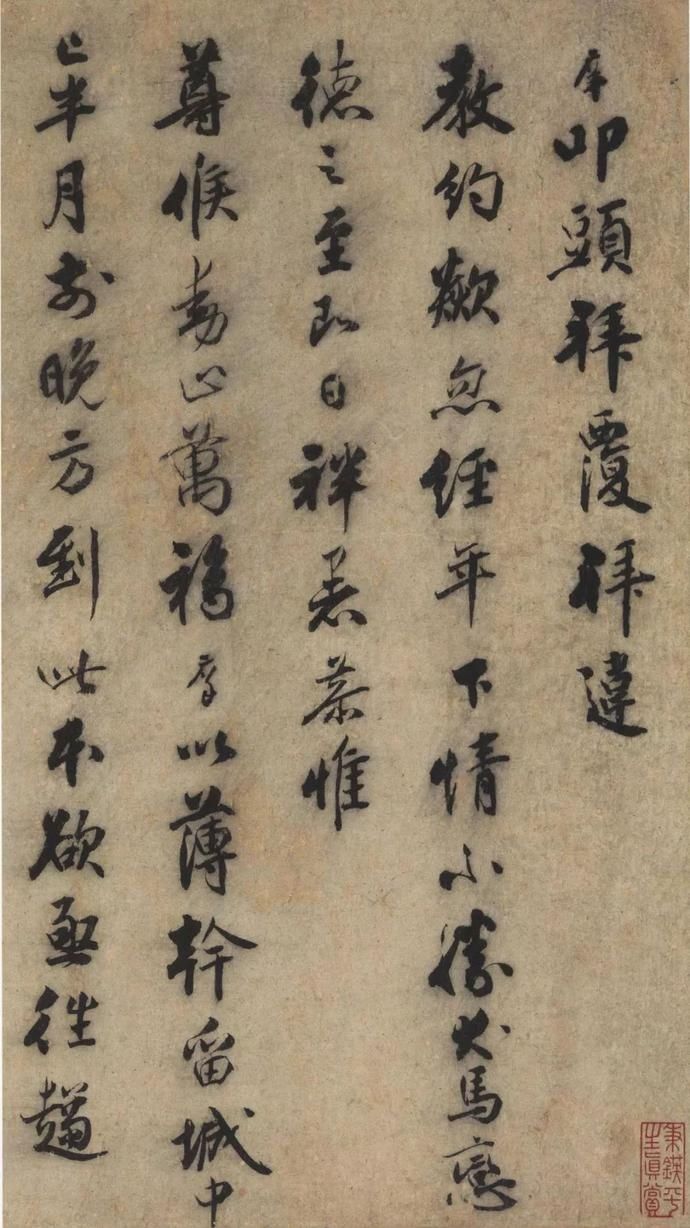 叩頭拜覆拜違
教約歘忽經年下情不勝犬馬戀
德之至即日袢暑恭惟
尊候動止萬福以薄幹留城中
已半月前晚方到此本欲亟往趨
平
生眞賞